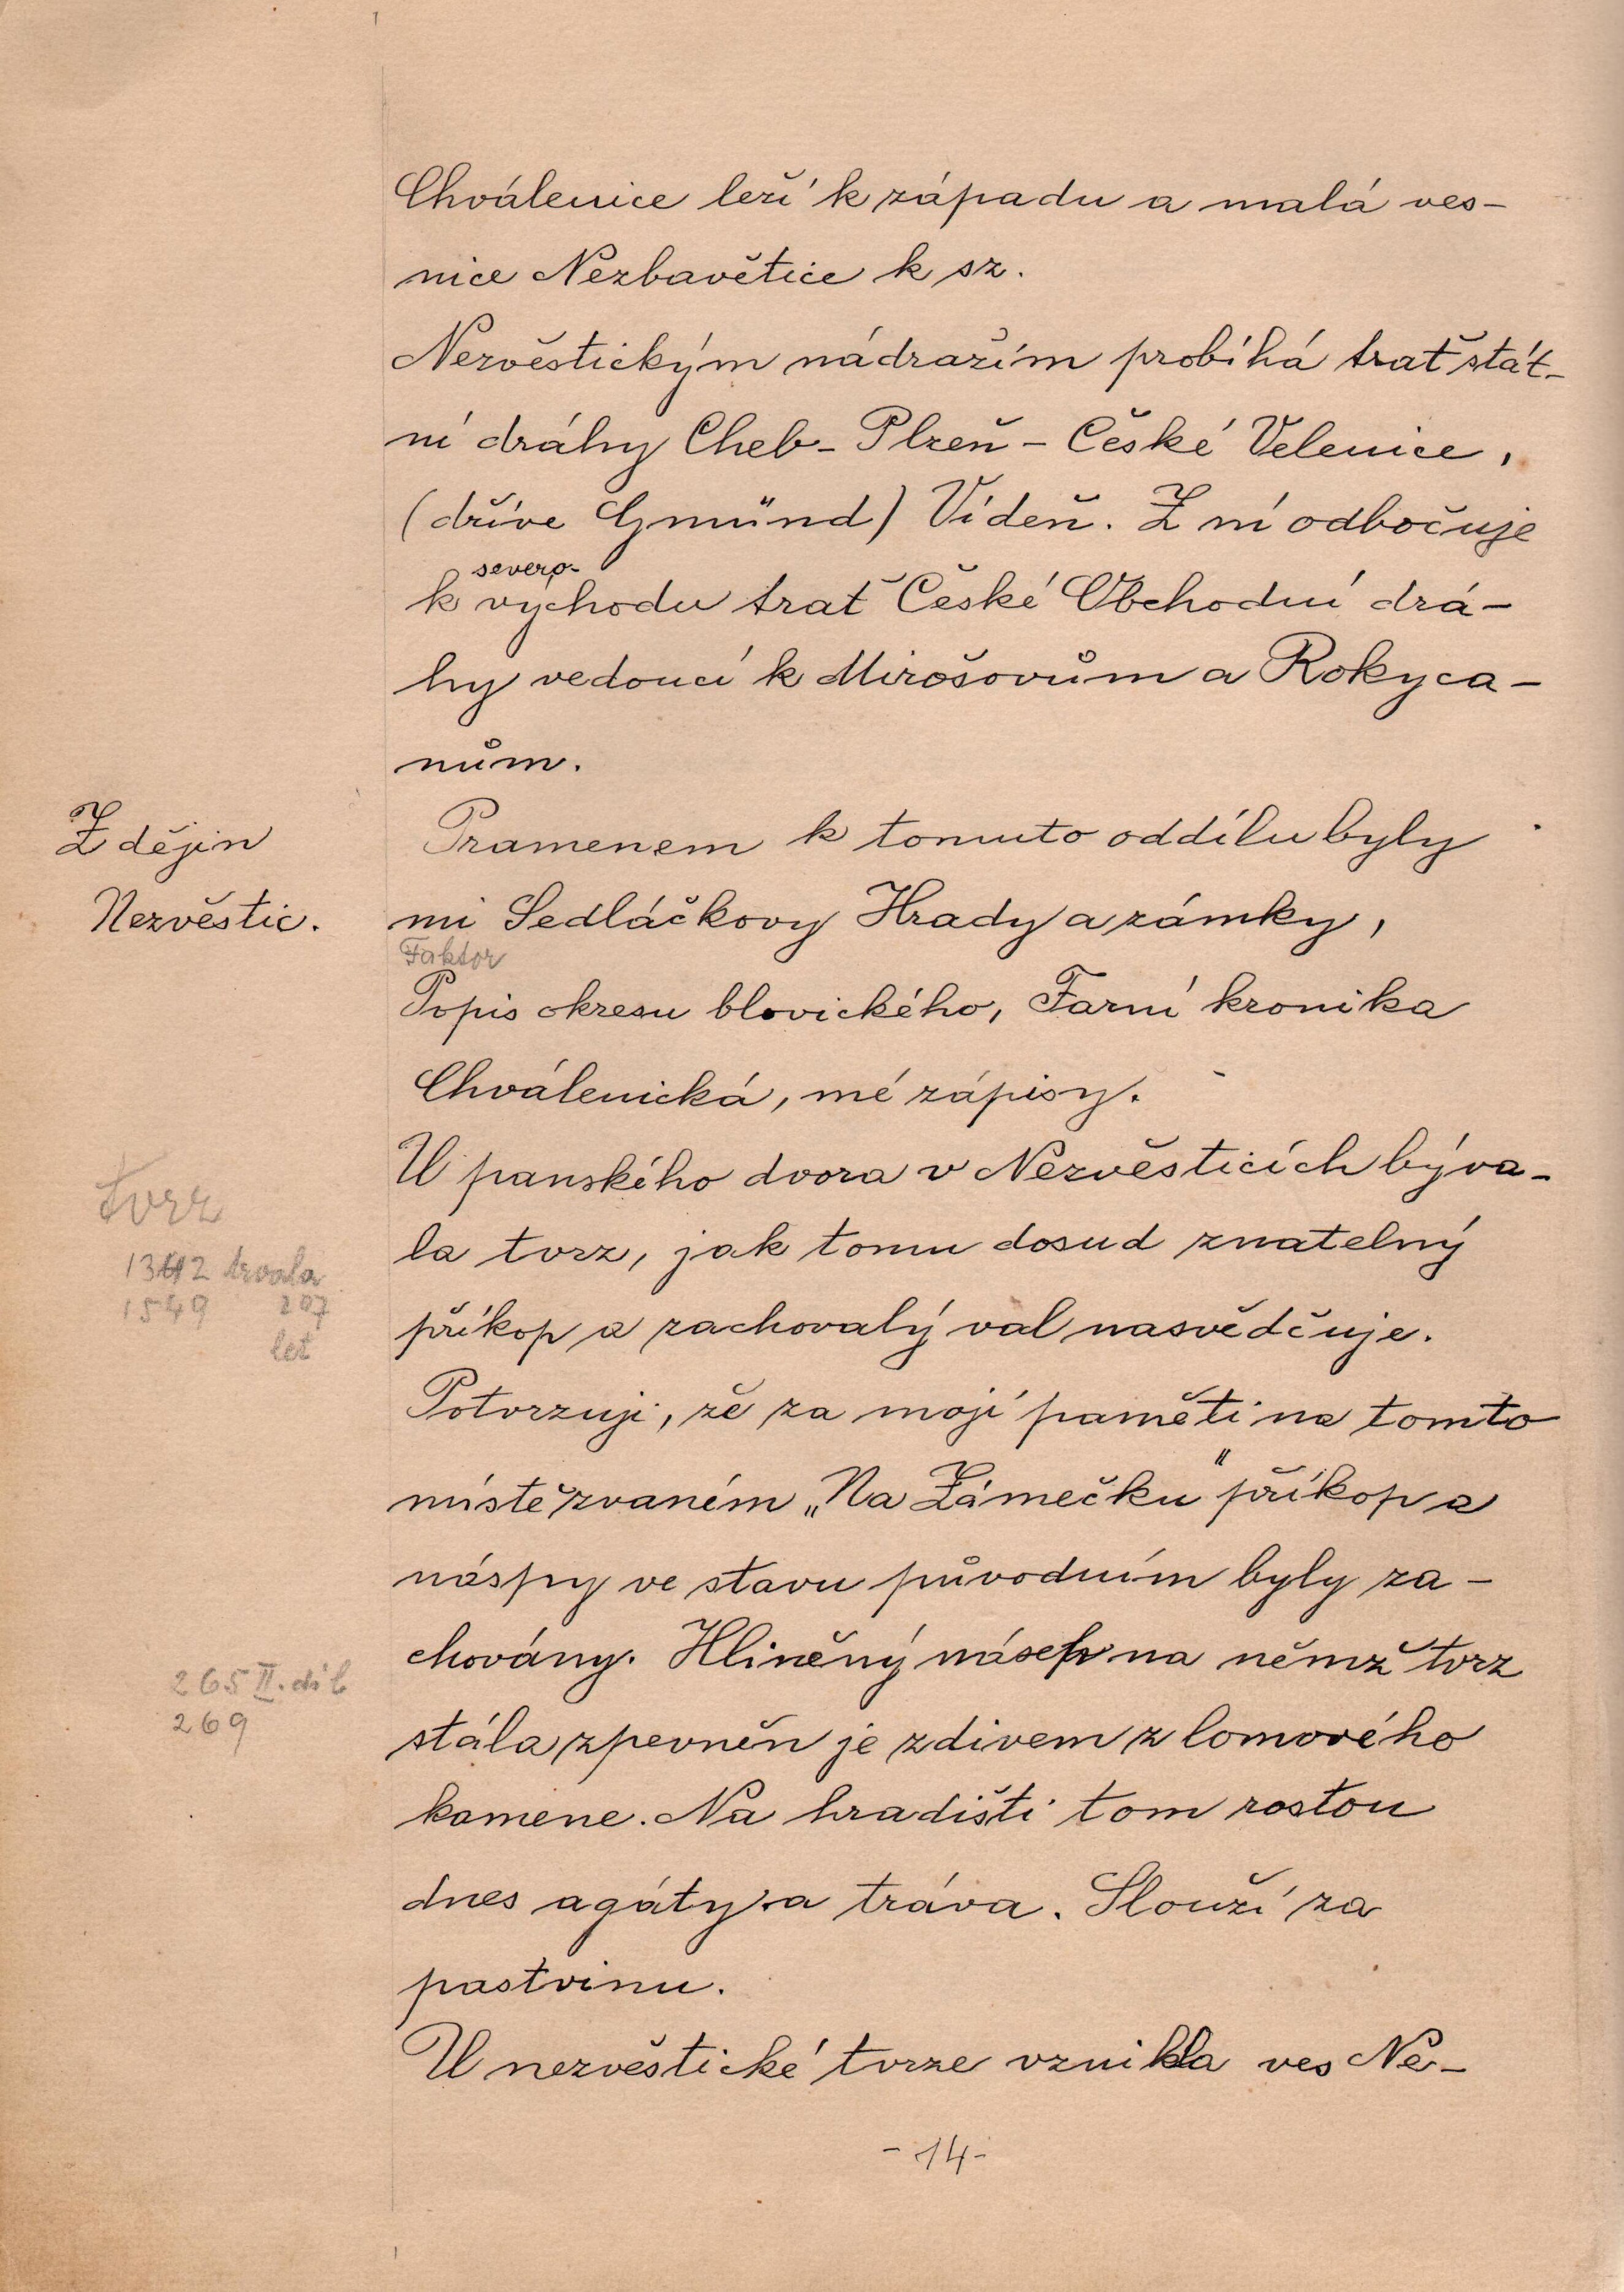 Chválenice leží k západu a malá ves-
nice Nezbavětice k sz.
Nezvěstickým nádražím probíhá trať stát-
ní dráhy Cheb - Plzeň - České Velenice,
(dříve Gmünd) Vídeň. Z ní odbočuje
severo-
k východu trať České Obchodní drá-
hy vedoucí k Mirošovům a Rokyca-
nům.
Z dějin
Nezvěstic.
Pramenem k tomuto oddílu byly
mi Sedláčkovy Hrady a zámky,
Faktor
Popis okresu blovického, Farní kronika
Chválenická, mé zápisy.
U panského dvora v Nezvěsticích býva-
la tvrz, jak tomu dosud znatelný
příkop a zachovalý val nasvědčuje.
tvrz
1342 trvala
1549 207
let
Potvrzuji, že za mojí paměti na tomto
místě zvaném „Na Zámečku" příkop a
náspy ve stavu původním byly za-
chovány. Hliněný násep na němž tvrz
stála zpevněn je zdivem z lomového
265 II. díl
269
kamene. Na hradišti tom rostou
dnes agáty a tráva. Slouží za
pastvinu.
U nezvěstické tvrze vznikla ves Ne-
- 14 -